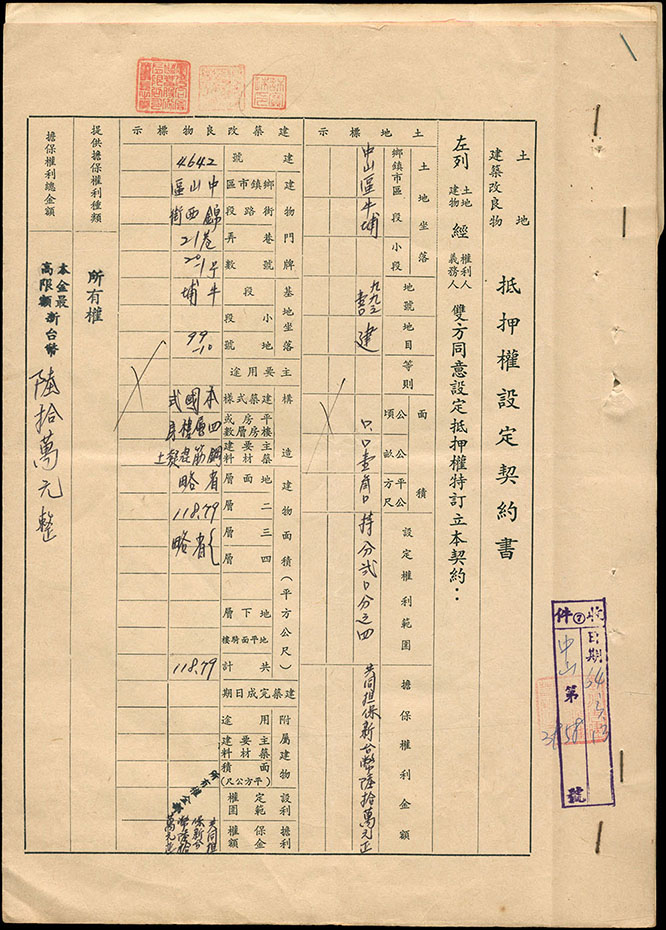 土地
建築改良物
抵押權設定契約書
左列
土地
建物
經
權利人
義務人
雙方同意設定抵押權特訂立本契約：
土地標示
土地坐落
鄉鎮市區
段
小段
中山區牛埔
地號
地目
建
等則
面積
公頃
公畝
平方公尺
設定權利範圍
持分貳口分之四
擔保權利金額
共同担保新台幣陸拾萬元正
建築改良物標示
建號
4642
建物門牌
鄉鎮市區
中山區
街路段
錦西街
巷弄
21巷
號數
20-1号
基地坐落
段
牛埔
小段
地號
99-10
主要用途
構造
建築式樣
本國式
平房或樓房層數
四層樓房
主要建築材料
鋼筋混凝土
建物面積（平方公尺）
地面層
省略
二層
118.79
三層
四層
省略
地下層
平地面騎樓
共計
118.79
建築完成日期
附屬建物
用途
主要建築材料
面積（平方公尺）
設定權利範圍
所有權全部
擔保權利金額
共同担保新台幣陸拾萬元正
提供擔保權利種類
所有權
擔保權利總金額
本金最高限額新台幣陸拾萬元整
收件
日期
中山第
3858
號